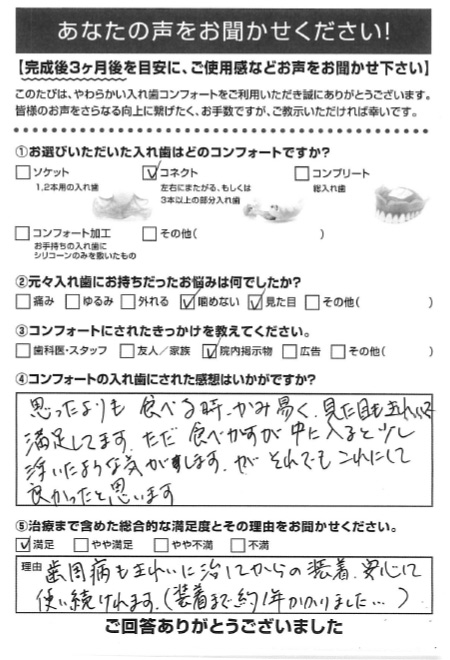 あなたの声をお聞かせください！
【完成後3ヶ月後を目安に、ご使用感などお声をお聞かせ下さい】
このたびは、やわらかい入れ歯コンフォートをご利用いただき誠にありがとうございます。
皆様のお声をさらなる向上に繋げたく、お手数ですが、ご教示いただければ幸いです。
①お選びいただいた入れ歯はどのコンフォートですか？
□ソケット ☑コネクト □コンプリート
1,2本用の入れ歯 左右にまたがる、もしくは 総入れ歯
3本以上の部分入れ歯
□コンフォート加工 □その他( )
お手持ちの入れ歯に
シリコーンのみを敷いたもの
②元々入れ歯にお持ちだったお悩みは何でしたか？
□痛み □ゆるみ □外れる ☑噛めない ☑見た目 □その他( )
③コンフォートにされたきっかけを教えてください。
□歯科医・スタッフ □友人／家族 ☑院内掲示物 □広告 □その他( )
④コンフォートの入れ歯にされた感想はいかがですか？
思ったよりも 食べる時、かみ易く、見た目もきれいで
満足してます。ただ 食べかすが 中に入ると少し
浮いたような気がします。が それでも これにして
良かったと思います
⑤治療まで含めた総合的な満足度とその理由をお聞かせください。
☑満足 □やや満足 □やや不満 □不満
理由 歯周病もきれいに治してからの装着、安心して
使い続けれます。(装着まで約1年かかりました…)
ご回答ありがとうございました